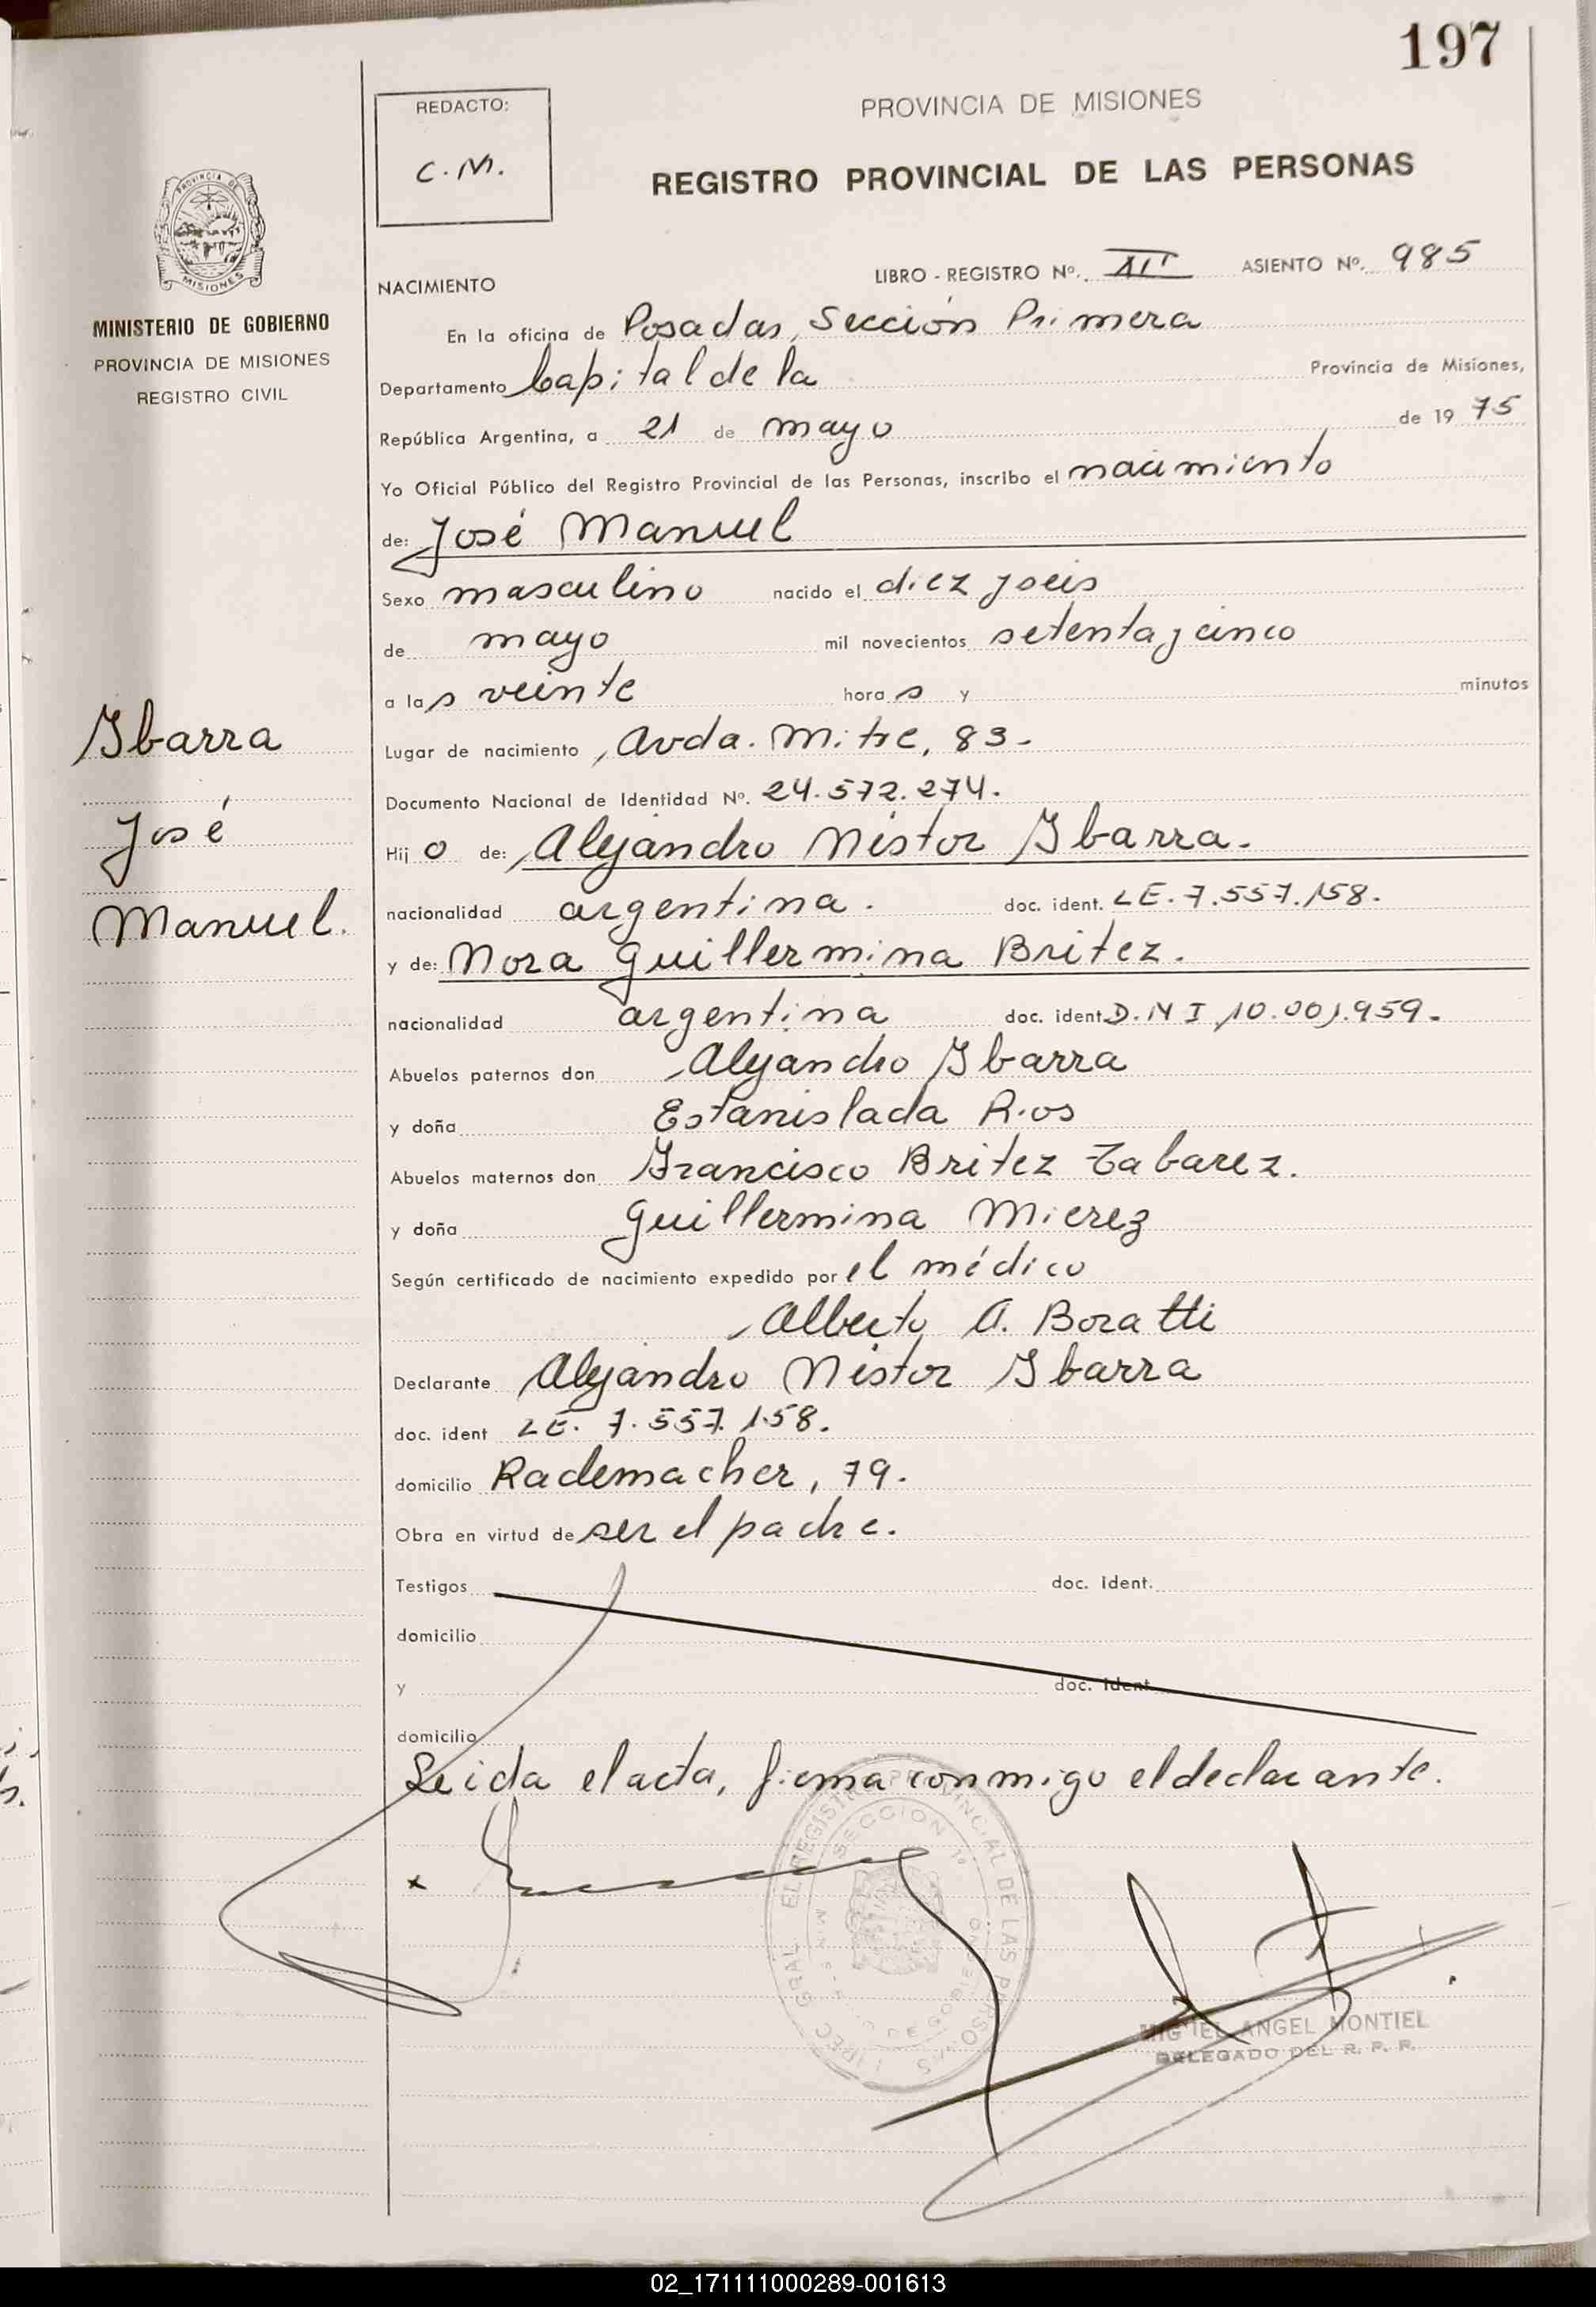 197
REDACTO:
C.M.
PROVINCIA DE MISIONES
REGISTRO PROVINCIAL DE LAS PERSONAS
MISIONES
MINISTERIO DE GOBIERNO
PROVINCIA DE MISIONES
REGISTRO CIVIL
NACIMIENTO
LIBRO - REGISTRO Nº. ASIENTO Nº. 985
En la oficina de Posadas, Sección Primera
Departamento Capital de la Provincia de Misiones,
República Argentina, a 21 de mayo de 1975
Yo Oficial Público del Registro Provincial de las Personas, inscribo el nacimiento
de: José Manuel
Sexo masculino nacido el diez y seis
de mayo mil novecientos setenta y cinco
a las veinte horas y minutos
Lugar de nacimiento, Avda. Mitre, 83-
Documento Nacional de Identidad Nº. 24.572.274.
Hijo de: Alejandro Néstor Ibarra.
nacionalidad argentina. doc. ident. LE. 7.557.158.
y de: Nora Guillermina Britez.
nacionalidad argentina doc. ident D.N I 10.001.959-
Abuelos paternos don Alejandro Ibarra
y doña Estanislada Rios
Abuelos maternos don Francisco Britez Tabarez.
y doña Guillermina Mierez
Según certificado de nacimiento expedido por el médico
Alberto A. Boratti
Declarante Alejandro Néstor Ibarra
doc. ident LE. 7.557.158.
domicilio Rademacher, 79.
Obra en virtud de ser el padre.
Testigos doc. ident.
domicilio
y doc. ident
domicilio
Leida el acta, firma conmigo el declarante.
Ibarra
José
Manuel.
x
REGISTRO PROVINCIAL DE LAS PERSONAS
SECCION 1º
MIGUEL ANGEL MONTIEL
DELEGADO DEL R. P. P.
02_171111000289-001613